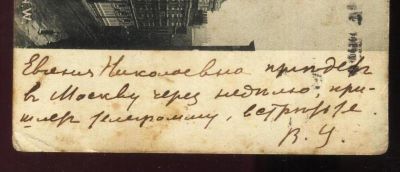 Евгенія Николаевна пріѣдетъ
въ Москву черезъ недѣлю, при-
шлетъ телеграмму, встрѣтьте.
В. У.